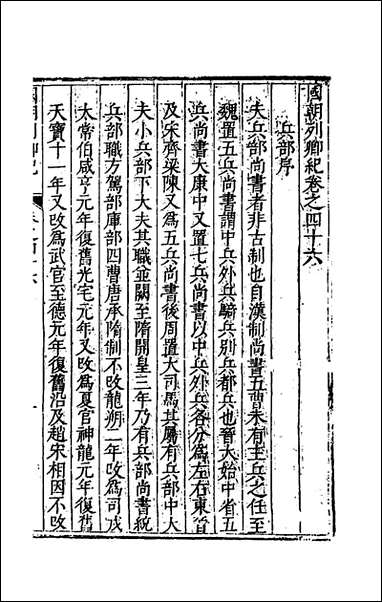 國朝列卿紀卷之四十六
兵部序
夫兵部尚書者非古制也自漢制尚書五曹未有主兵之任至
魏置五兵尚書謂中兵外兵騎兵別兵都兵也晉太始中省五
兵尚書大康中又置七兵尚書以中兵外兵各分爲左右東晉
及宋齊梁陳又爲五兵尚書後周置大司馬其屬有兵部中大
夫小兵部下大夫其職並闕至隋開皇三年乃有兵部尚書統
兵部職方駕部庫部四曹唐承隋制不改龍朔二年改爲司戎
太常伯咸亨元年復舊光宅元年又改爲夏官神龍元年復舊
天寶十一年又改爲武官至德元年復舊沿及趙宋相因不改